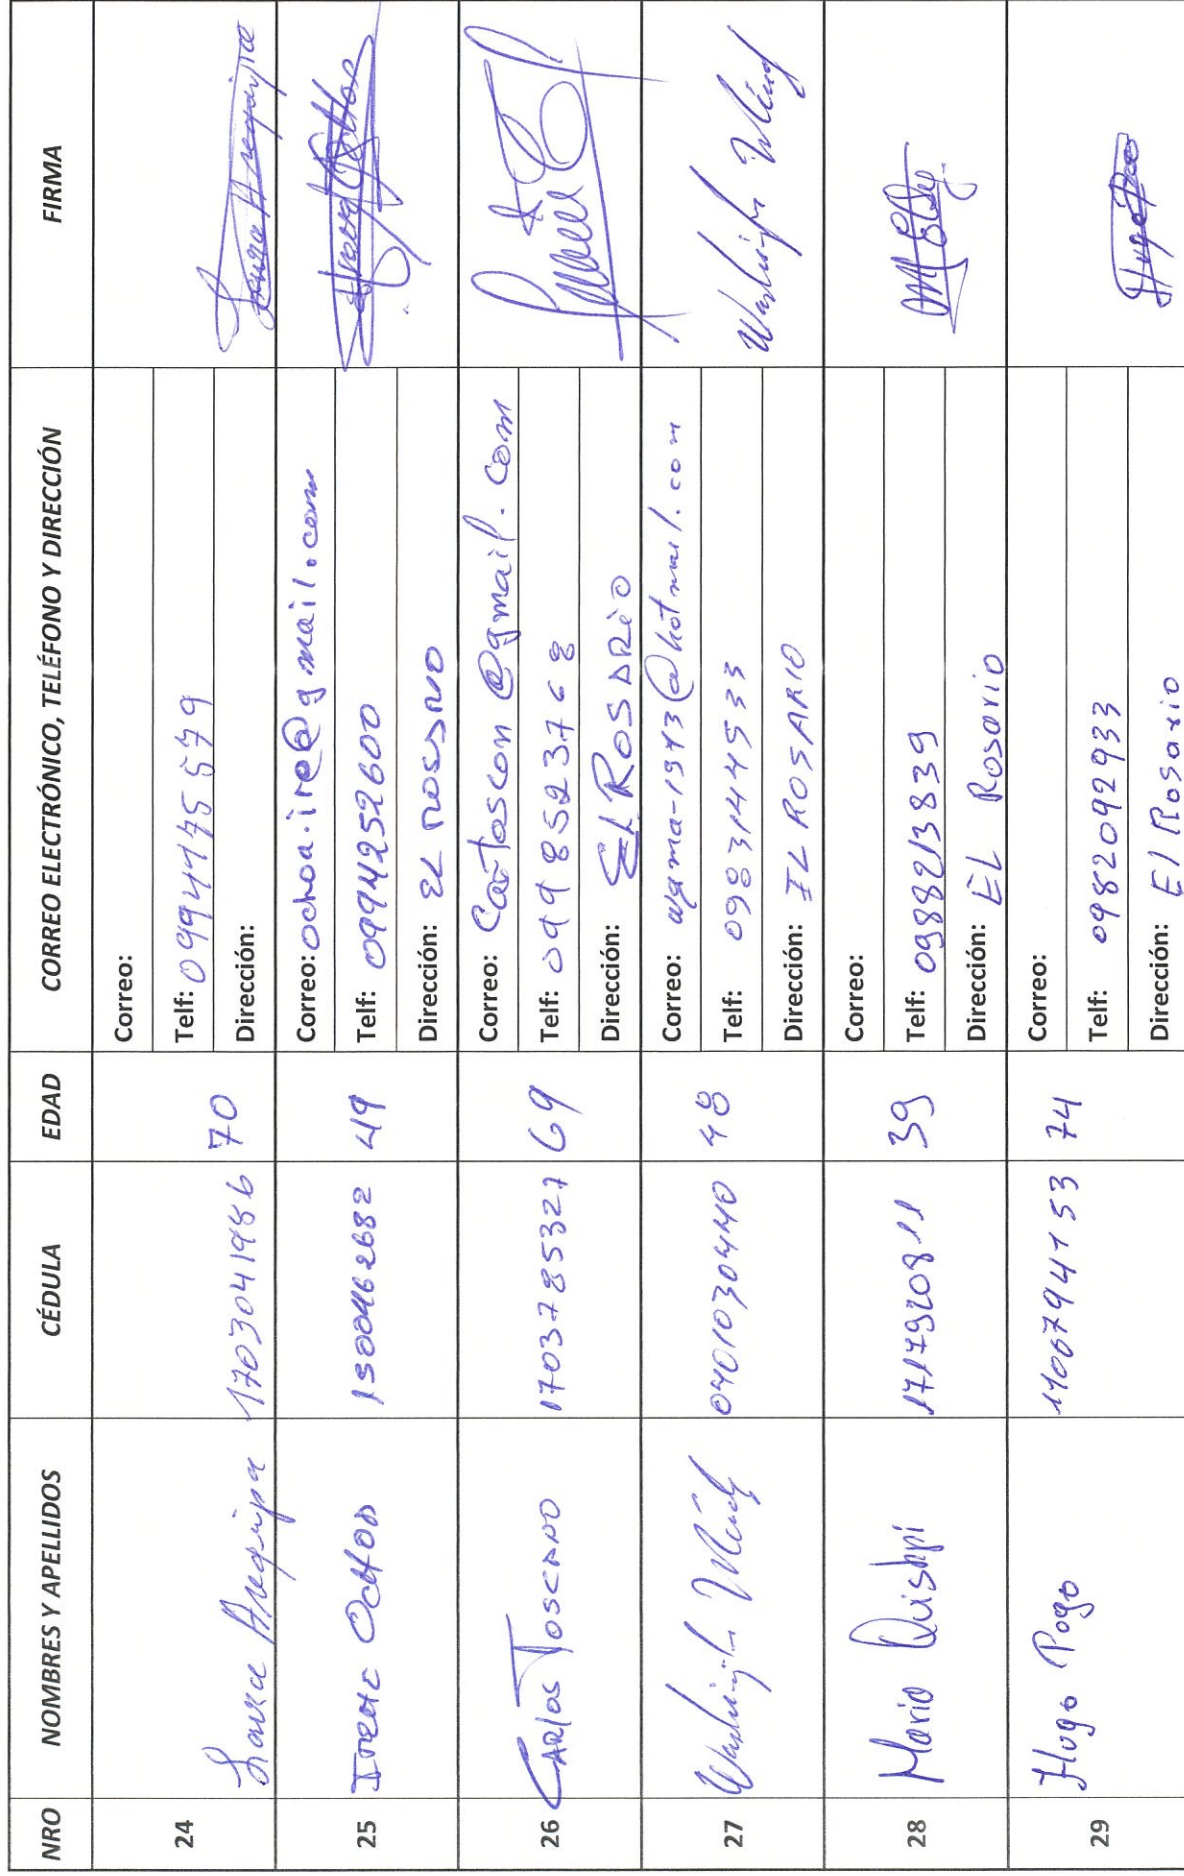 NRO NOMBRES Y APELLIDOS CÉDULA EDAD CORREO ELECTRÓNICO, TELÉFONO Y DIRECCIÓN FIRMA
24 Laura Arequipa 1703041986 70
Correo:
Telf: 0994175579
Dirección:
Laura Arequipa
25 Irene Ochoa 1500462682 49
Correo: ochoa.ire@gmail.com
Telf: 0994252600
Dirección: EL ROSARIO
26 Carlos Toscano 1703785327 69
Correo: Cartoscon@gmail.com
Telf: 0998523768
Dirección: EL ROSARIO
27 Washington 0401030440 48
Correo: wgma-1973@hotmail.com
Telf: 0983144533
Dirección: EL ROSARIO
Washington
28 Mario Quishpi 1717920811 39
Correo:
Telf: 0988213839
Dirección: EL Rosario
29 Hugo Pogo 1706794153 74
Correo:
Telf: 0982092933
Dirección: El Rosario
Hugo Pogo